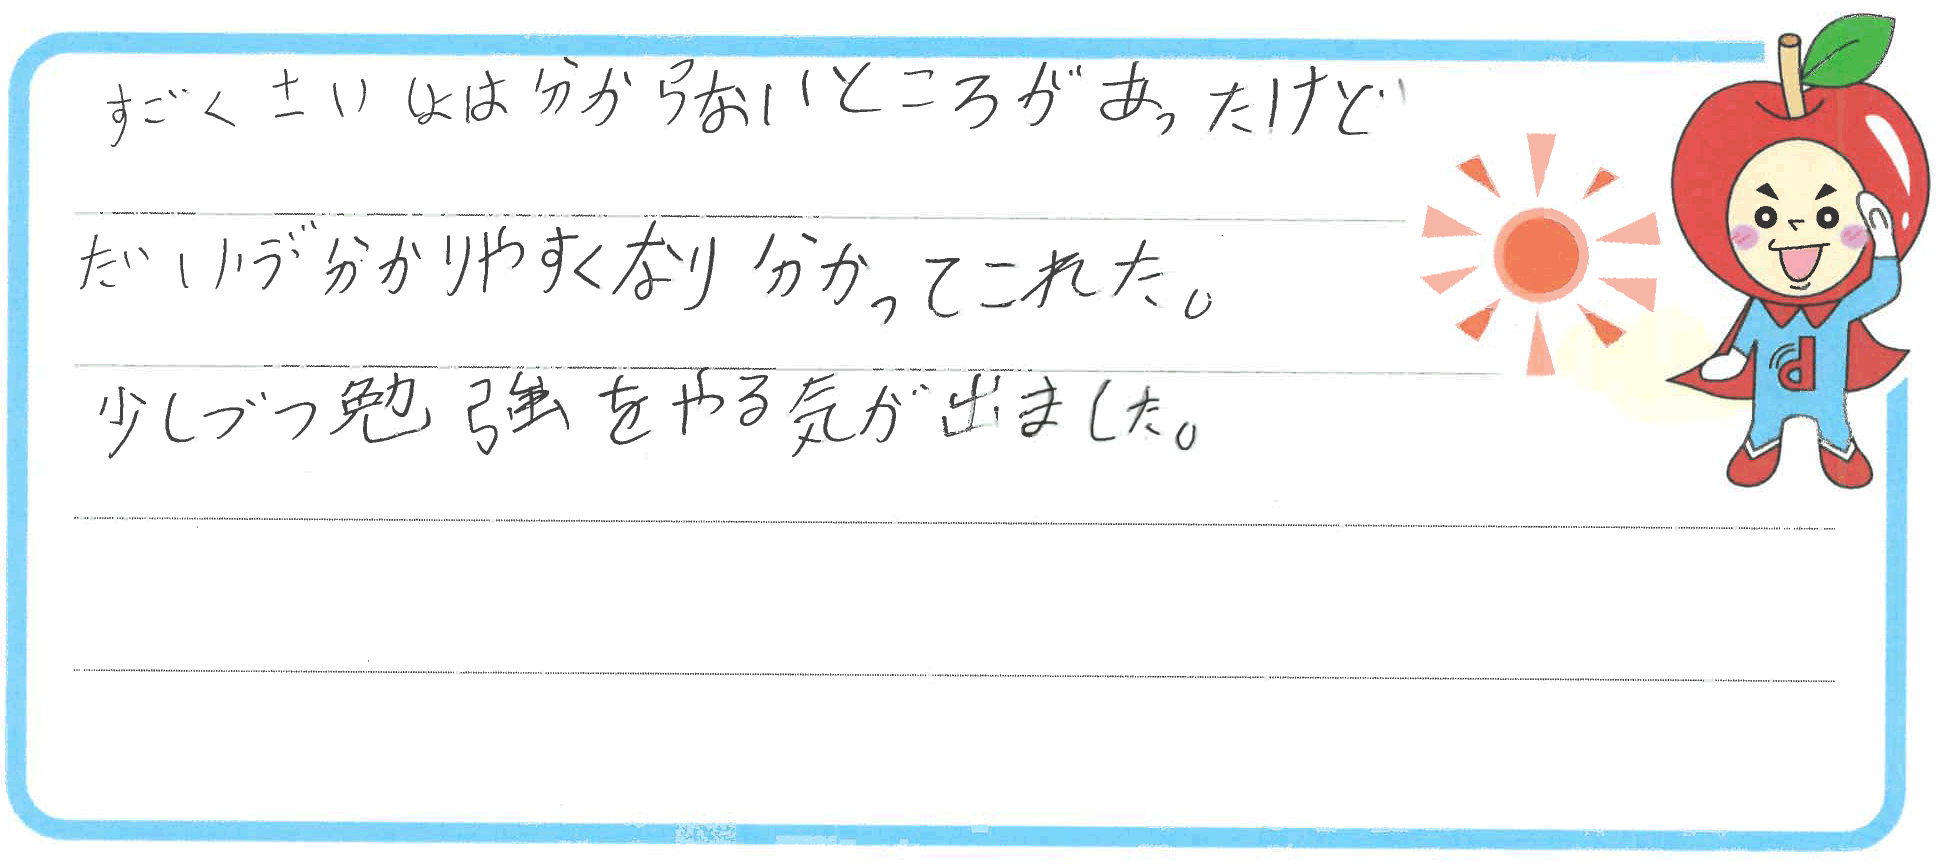 すごくさいしょは分からないところがあったけど
だいぶ分かりやすくなり分かってこれた。
少しづつ勉強をやる気が出ました。
d